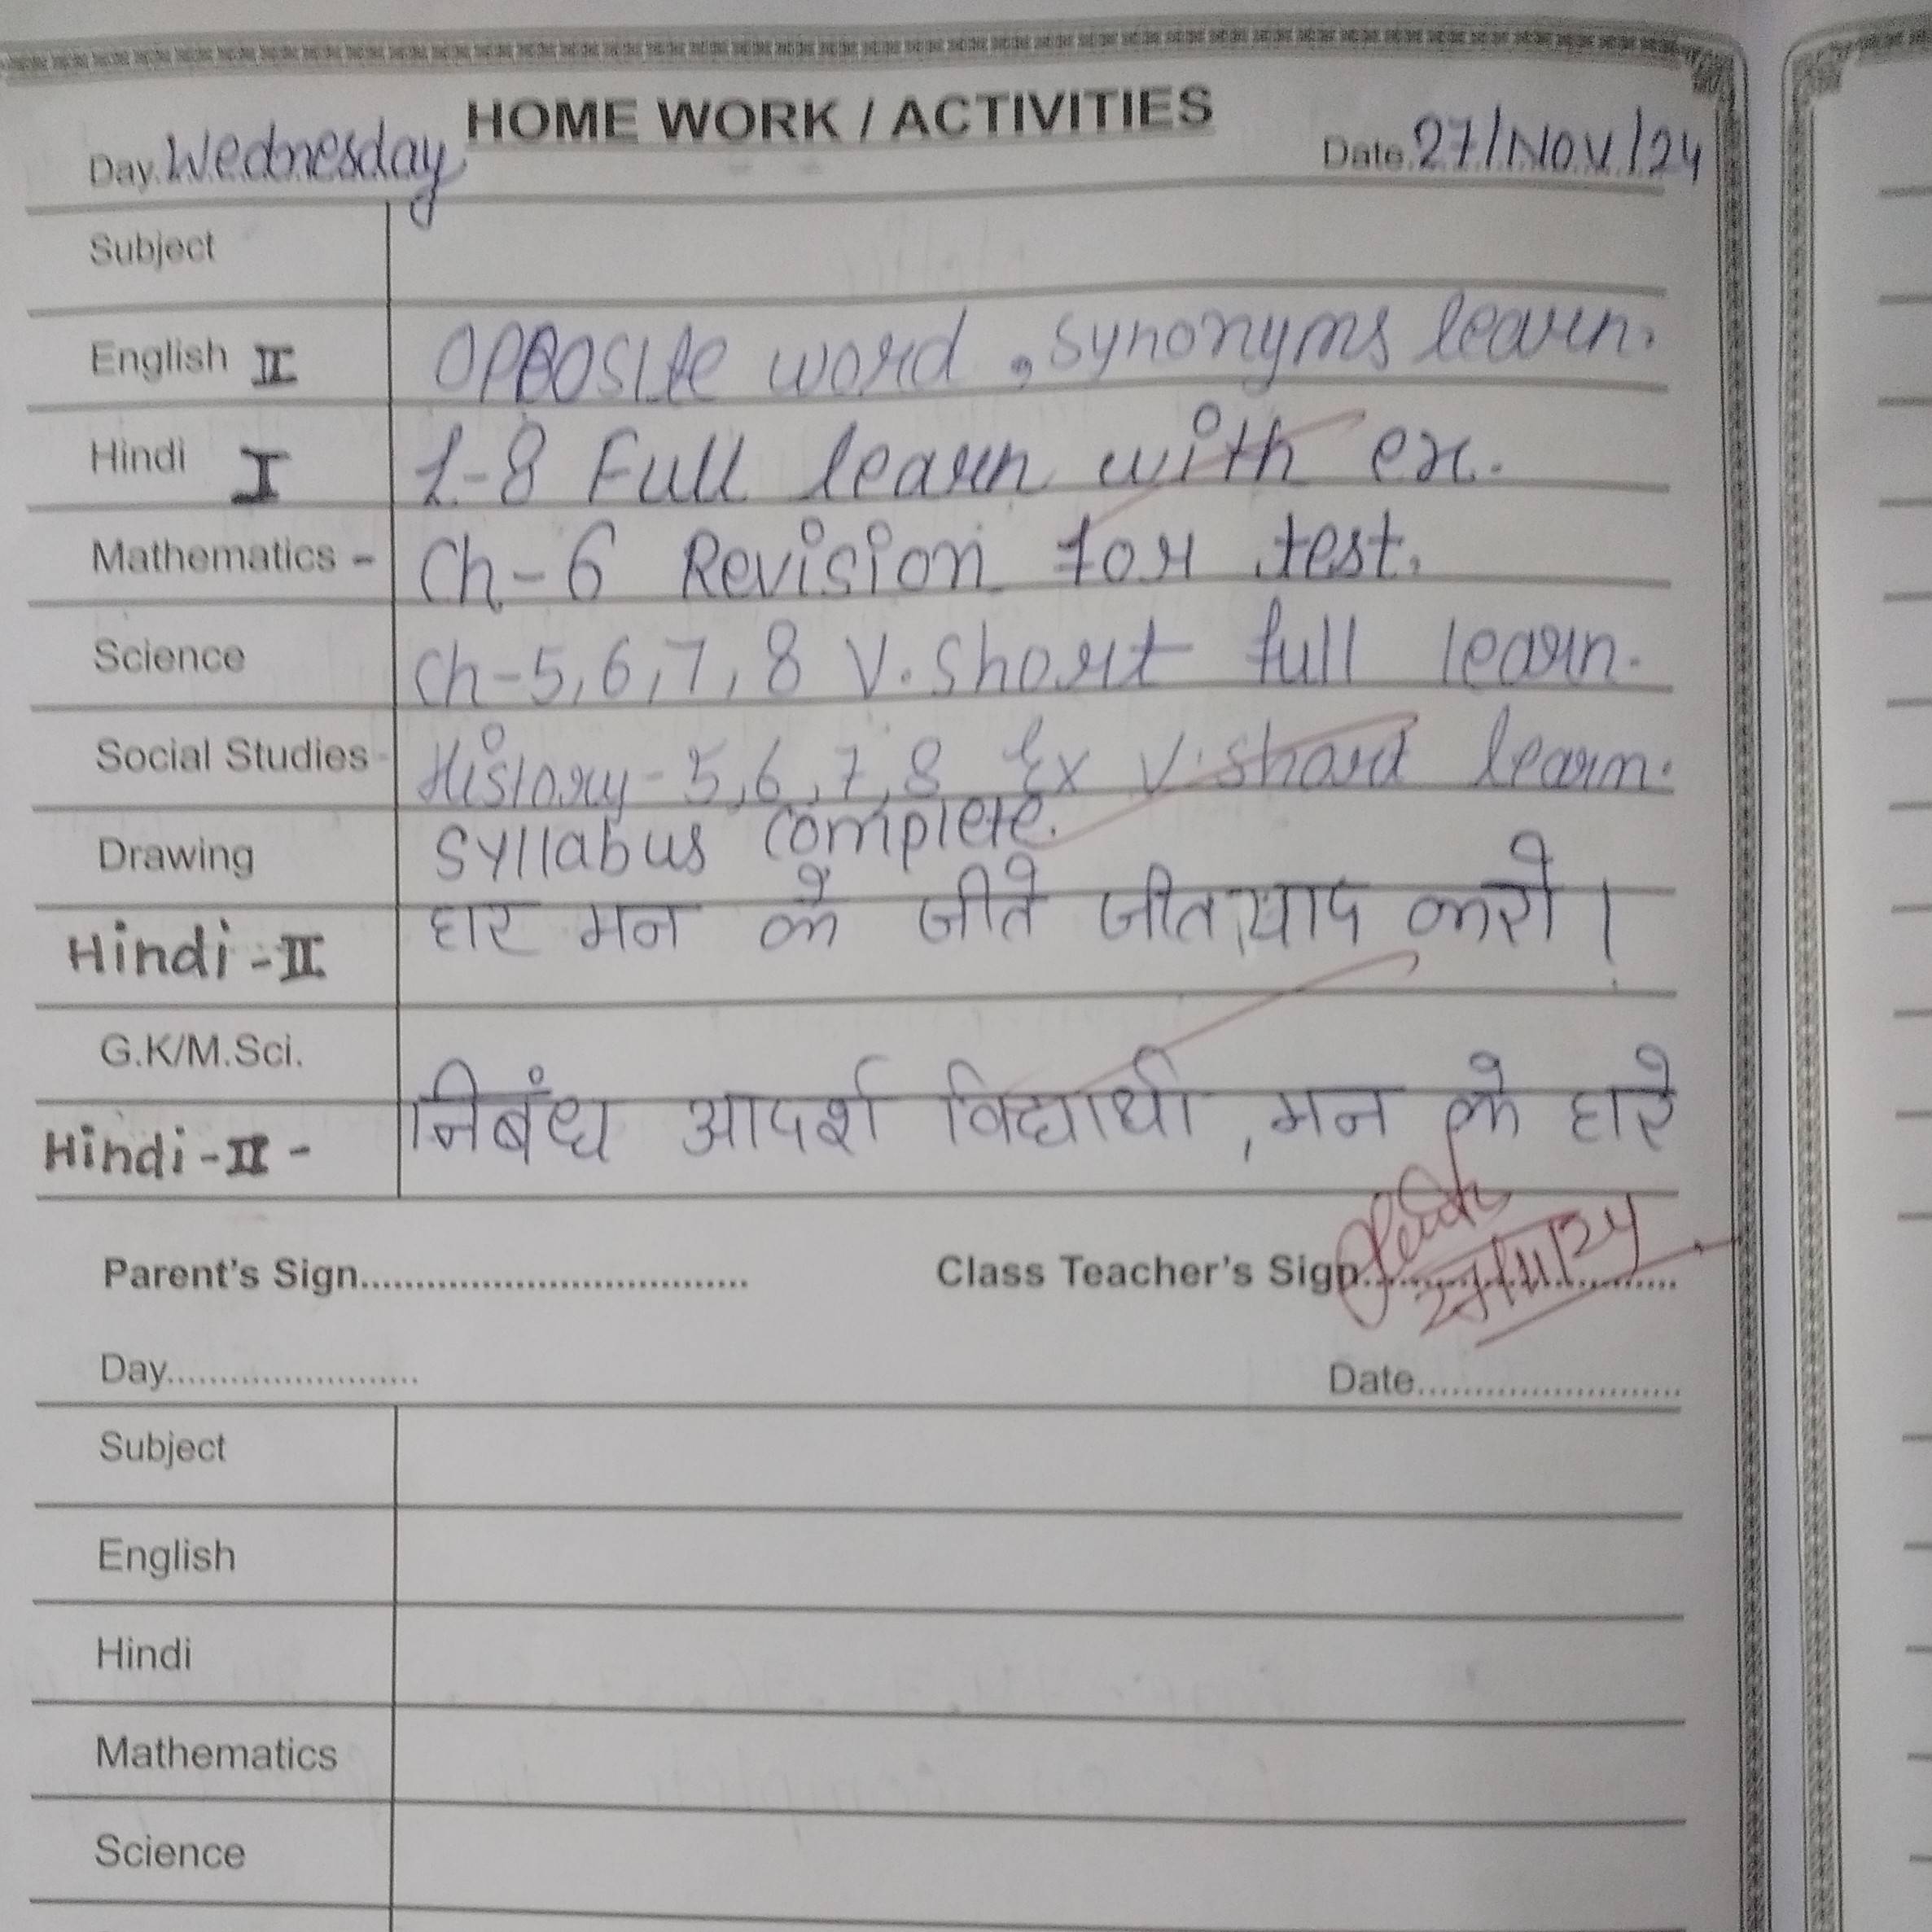 HOME WORK / ACTIVITIES
Day. Wednesday Date. 27/Nov/24
Subject
English II opposite word, synonyms learn.
Hindi I 1-8 Full learn with ex.
Mathematics - Ch-6 Revision for test.
Science Ch-5,6,7,8 V. Short full learn.
Social Studies- History-5,6,7,8 Ex V. Short learn.
Drawing Syllabus complete.
Hindi-II हार मन के जीते जीत याद करो।
G.K/M.Sci.
Hindi-II- निबंध आदर्श विद्यार्थी, मन के हारे
Parent's Sign.................................. Class Teacher's Sign.............................
27/11/24
Day........................ Date..........................
Subject
English
Hindi
Mathematics
Science